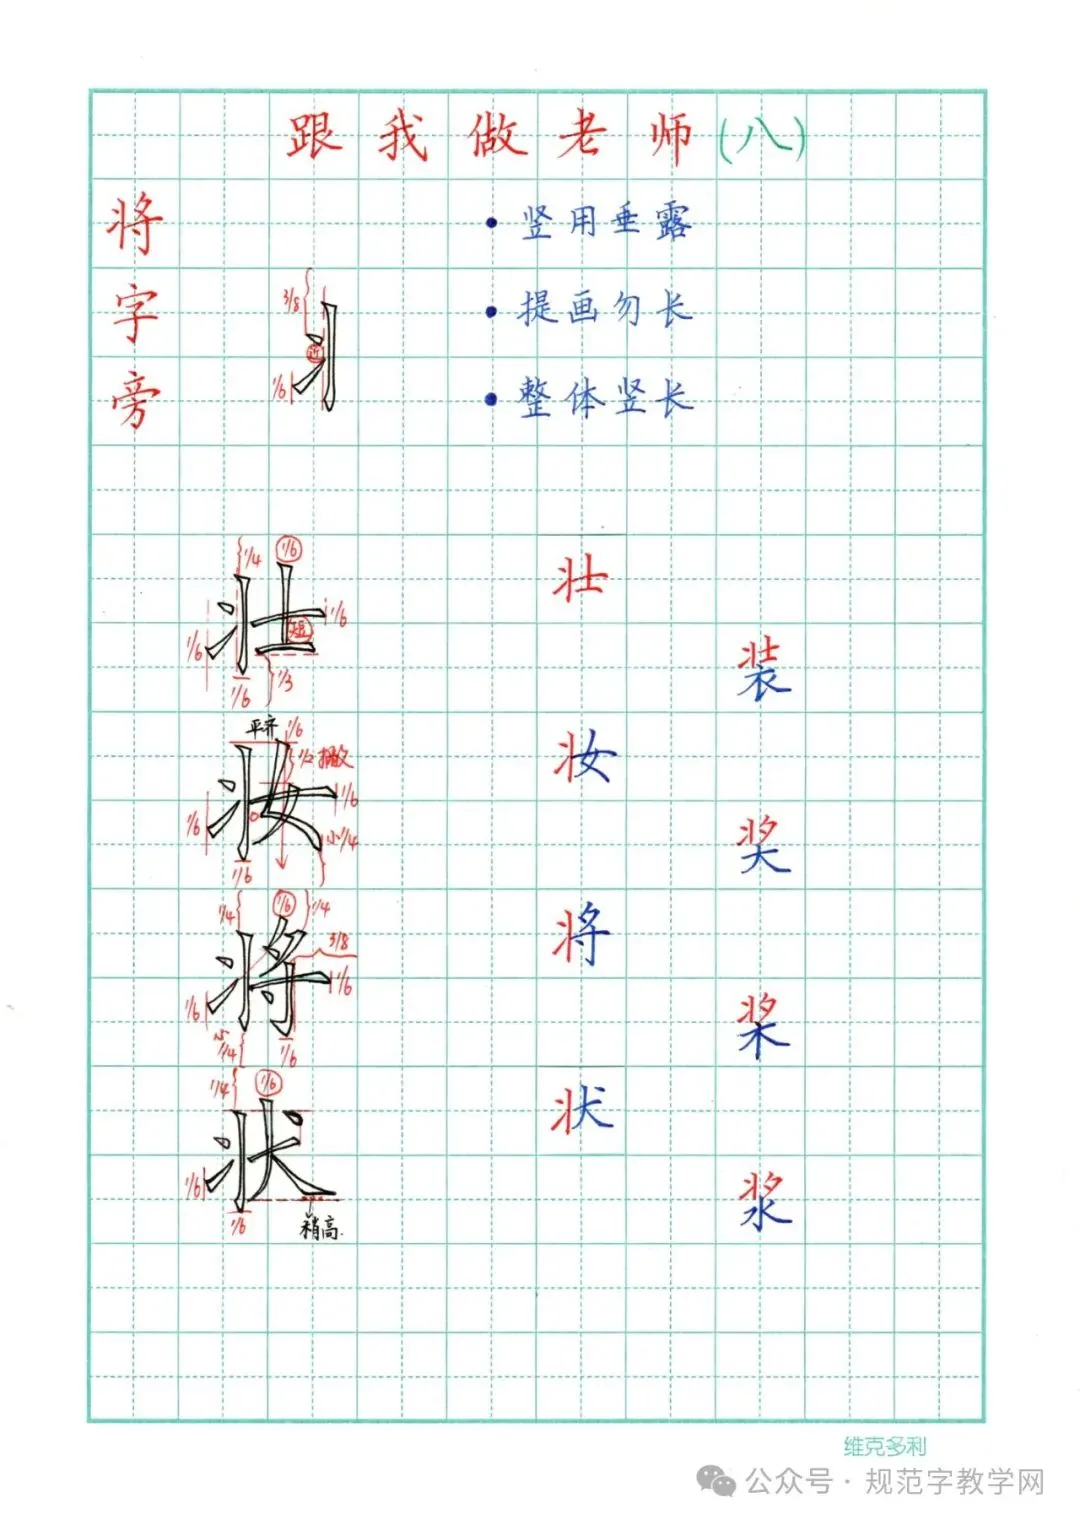 跟我做老师(八)
将字旁
• 竖用垂露
• 提画勿长
• 整体竖长
3/8
近
1/6
1/4
1/6
1/6
短
1/6
1/6
1/3
壮
装
平齐
1/6
1/2
1/6
1/6
小1/4
1/6
妆
奖
1/4
1/6
1/4
3/8
1/6
1/6
1/6
将
桨
1/4
1/6
1/6
1/6
稍高
状
浆
维克多利
公众号·规范字教学网